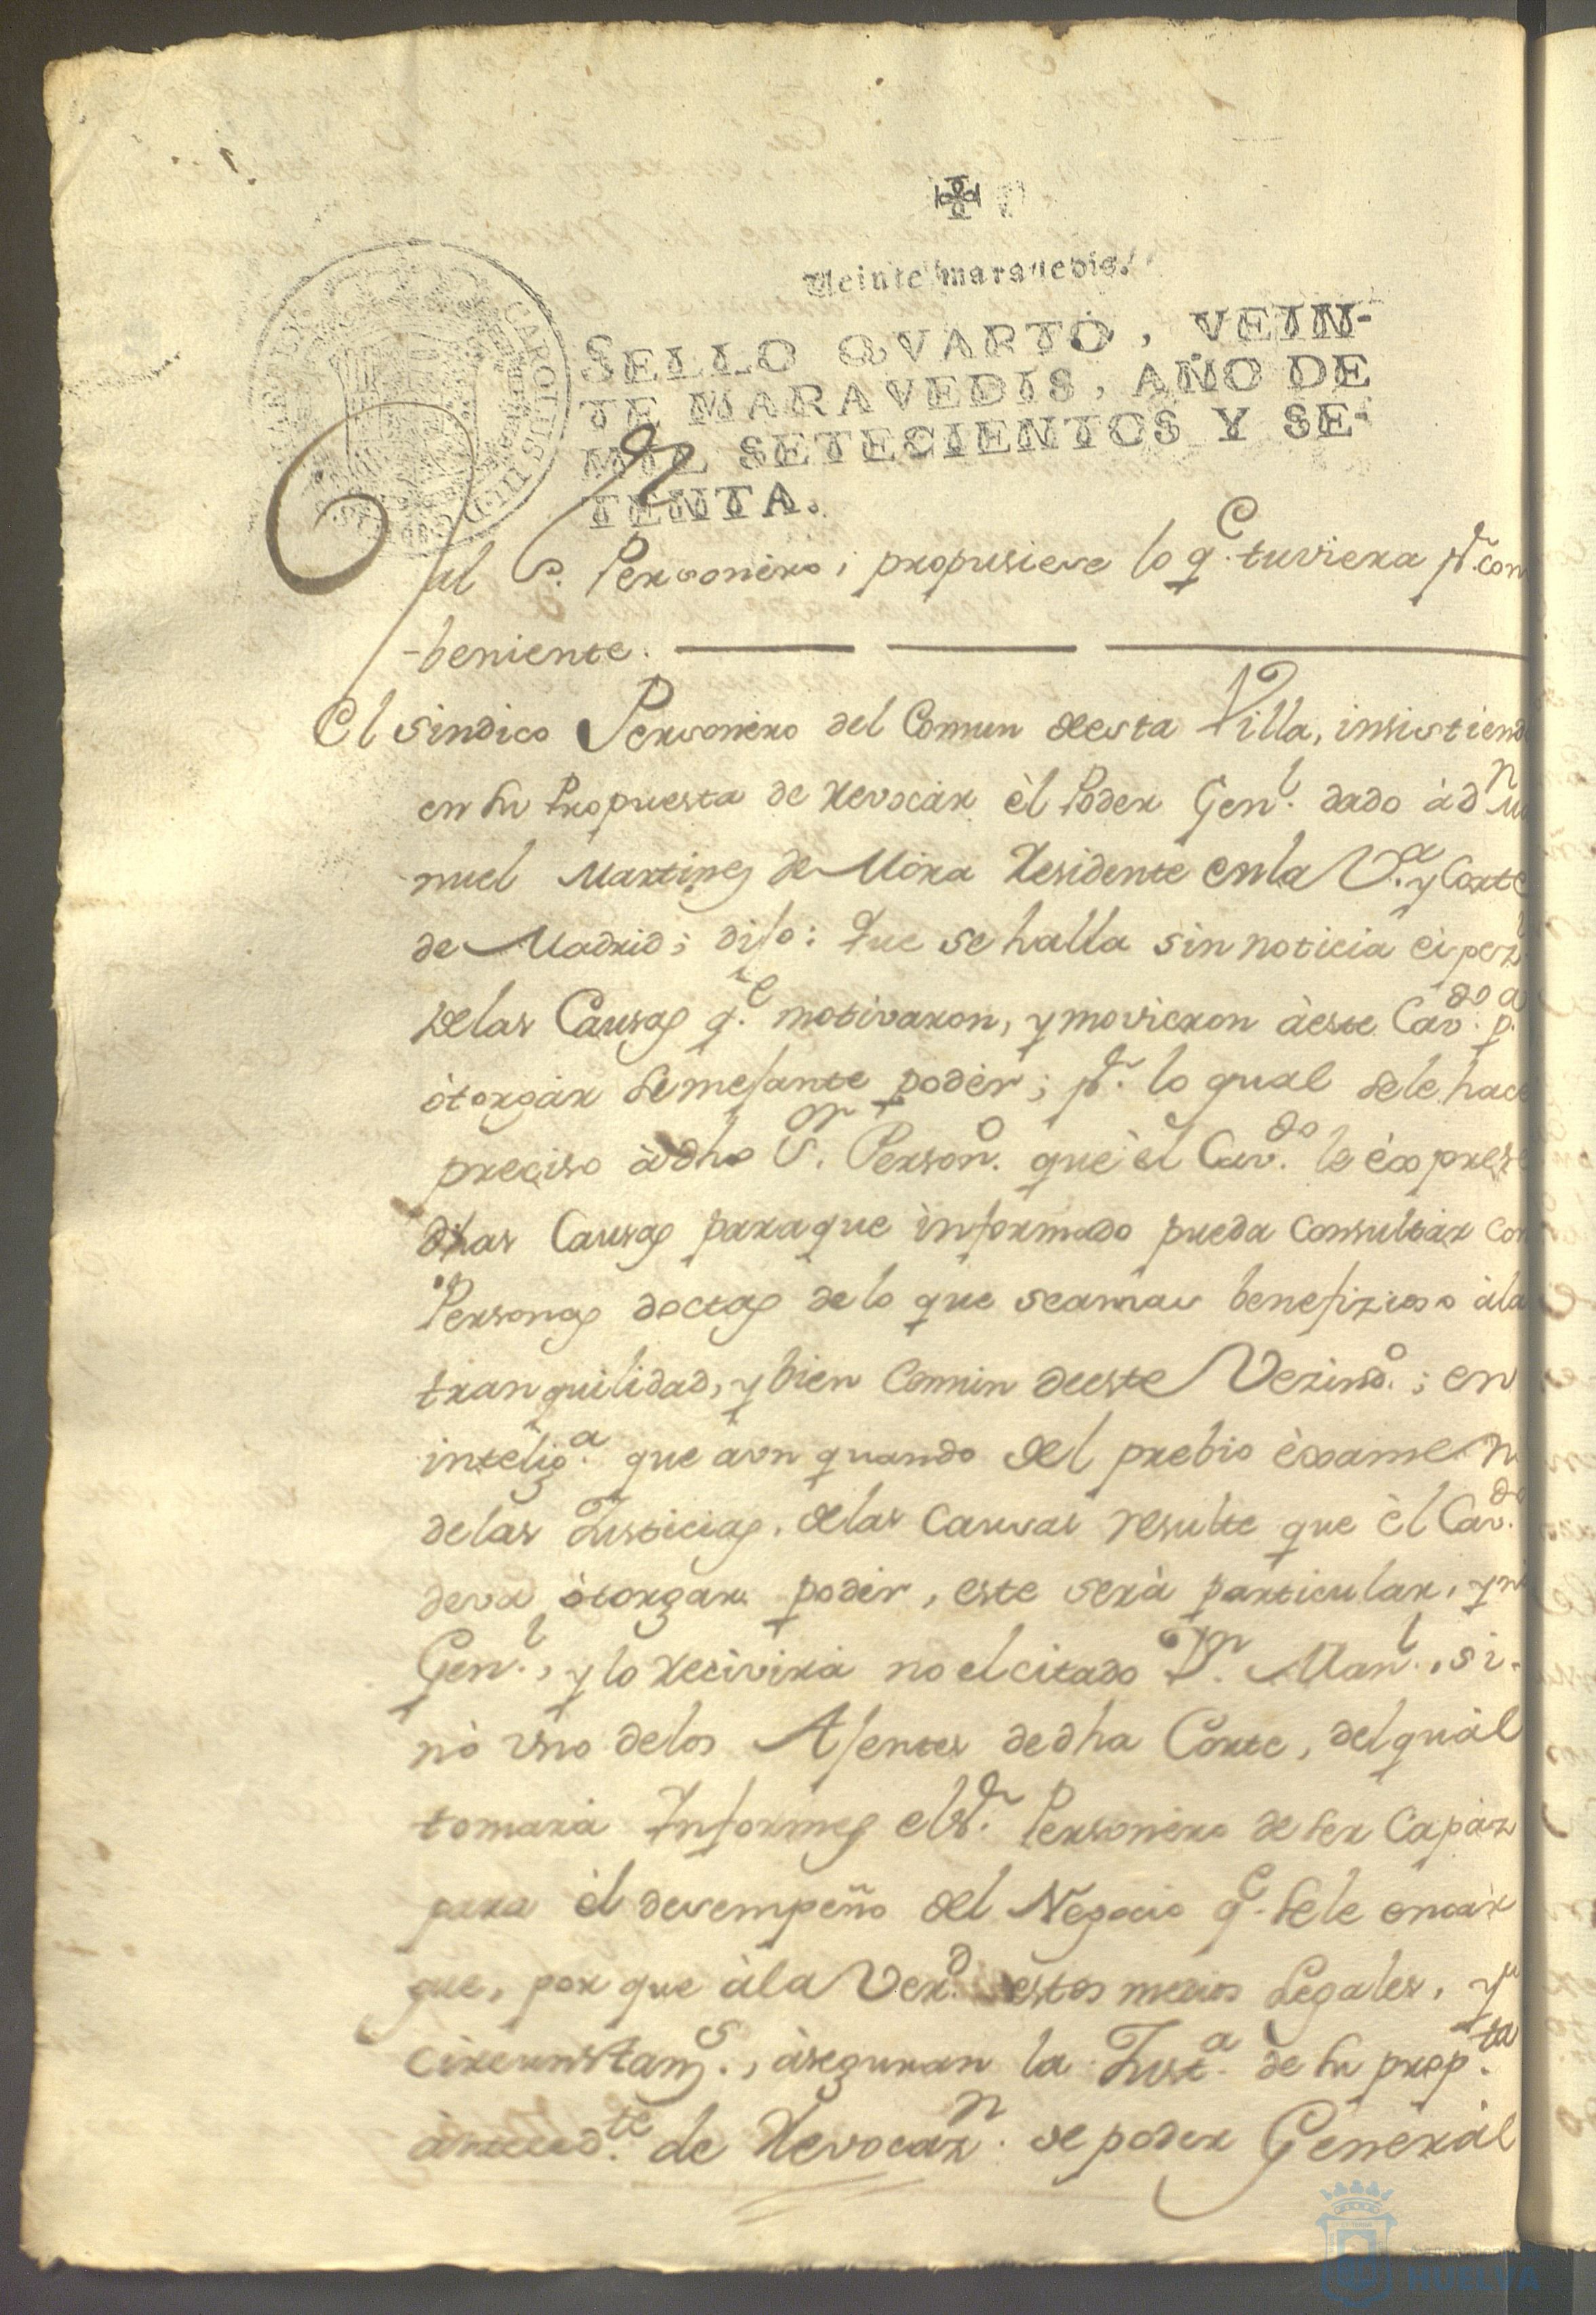 Veinte maravedis.
SELLO QVARTO, VEIN-
TE MARAVEDIS, AÑO DE
MIL SETECIENTOS Y SE-
TENTA.
CAROLUS III D G
al Sr. Personero, propusiese lo q.e tuviera p.r com
-beniente.
El sindico Personero del Comun desta Villa, insistiend
en su Propuesta de revocar èl Poder Gen.l dado à d.n
nuel Martinez de Mora Residente en la V.a y Corte
de Madrid; dijo: que se halla sin noticia
de las Causas q.e motivaron, y movieron à este Cav.do p.a
òtorgar semejante poder; p.r lo qual se le hace
preciso à dho S.or Person.o que èl Cav.do le èxprese
dhas Causas para que informado pueda Consultar con
Personas doctas de lo que sea mas benefizioso à la
tranquilidad, y bien Comun de este Vezind.o; en
intelig.a que aun quando del prebio èxamen
de las Justicias, de las causas resulte que èl Cav.do
deva òtorgar poder, este serà particular, y no
Gen.l, y lo recivirà no el citado D.n Man.l, si-
nò uno de los Ajentes de dha Corte, del quàl
tomarà Informes el S.r Personero de ser Capàz
para èl desempeño del Negocio q.e se le encar
gue, por que à la Ver.d estos medios Legales, y
circunstan.s, àseguran la Just.a de su prop.ta
àntecedte de Revocaz.n se poder Generàl
HUELVA